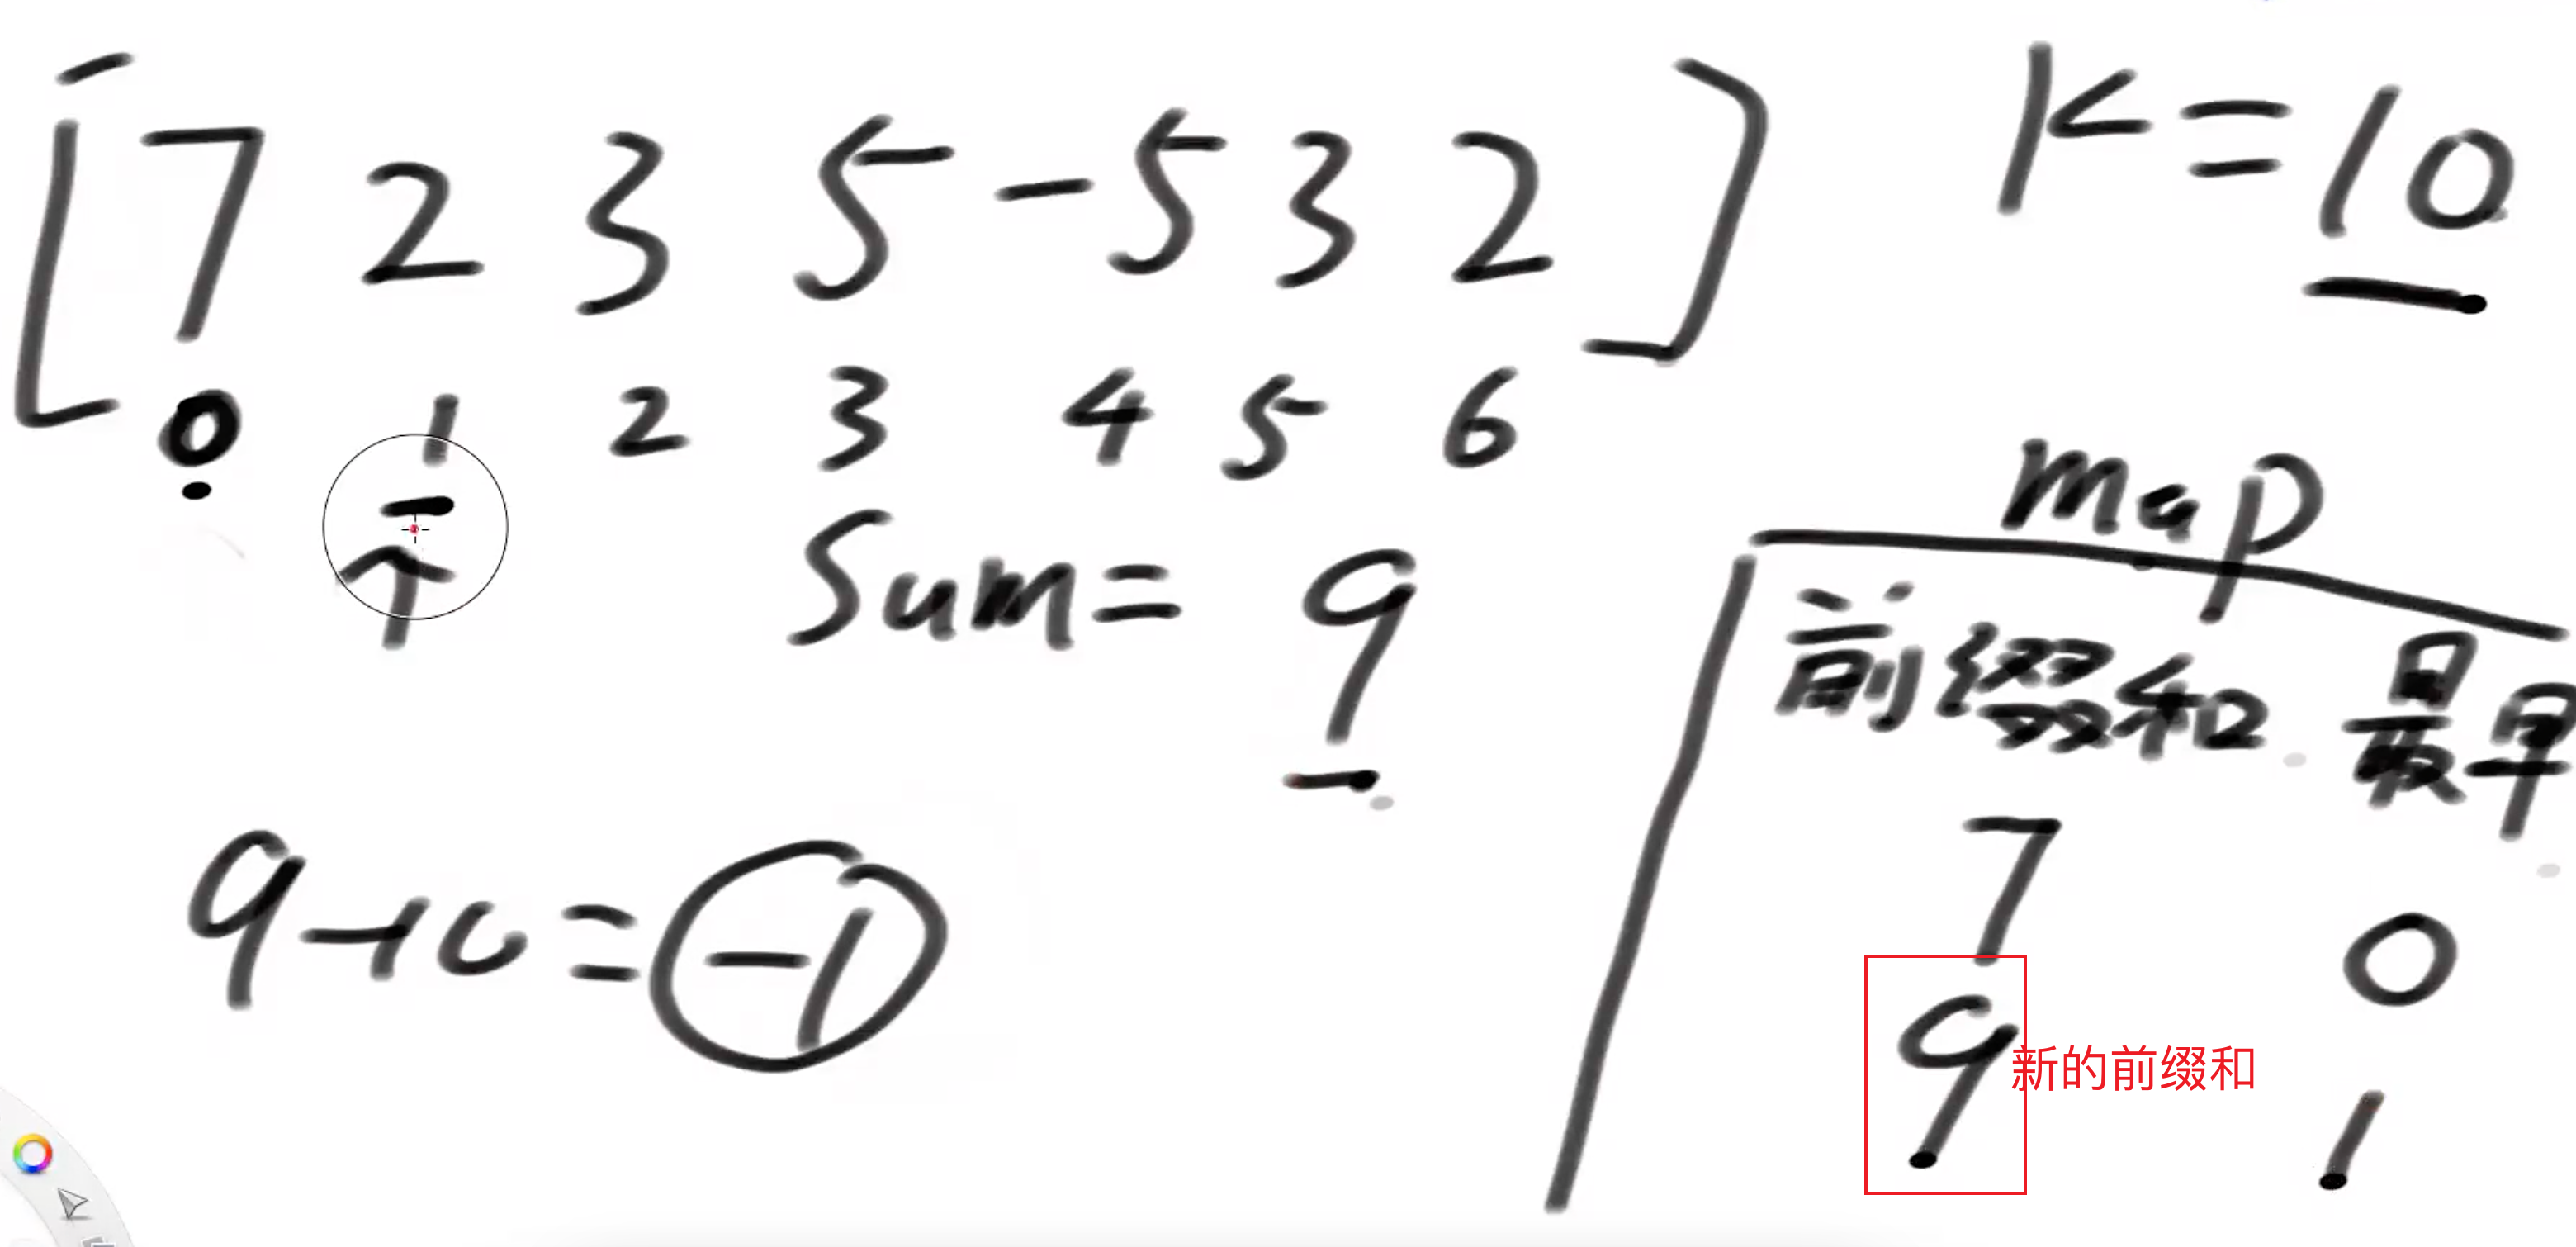 [7 2 3 5 -5 3 2] K=10
0 1 2 3 4 5 6
Sum= 9
9-10=-1
map
前缀和 最早
7 0
9 新的前缀和 1